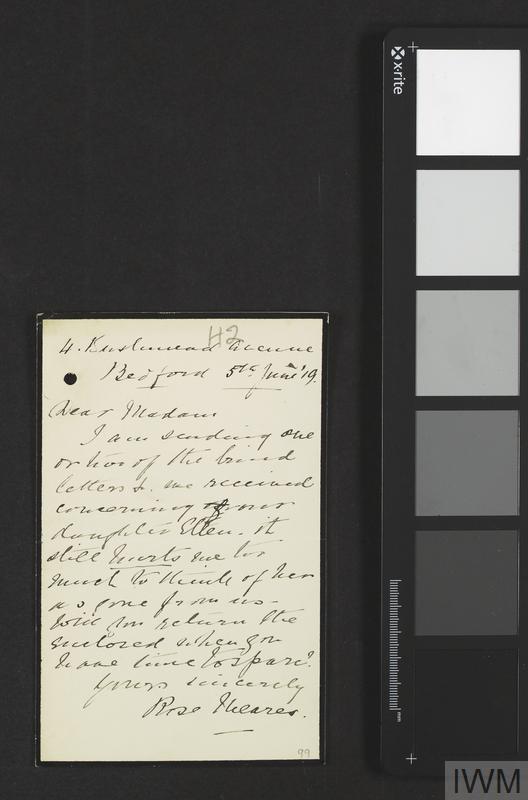 H2
4. Avenue
Bedford 5th June '19.
Dear Madam
I am sending one
or two of the kind
letters &. we received
concerning our
daughter Ellen. it
still hurts me too
much to think of her
as gone from us -
Will you return the
enclosed when you
have time to spare?
Yours sincerely
Rose Meares.
99
x·rite
mm
IWM